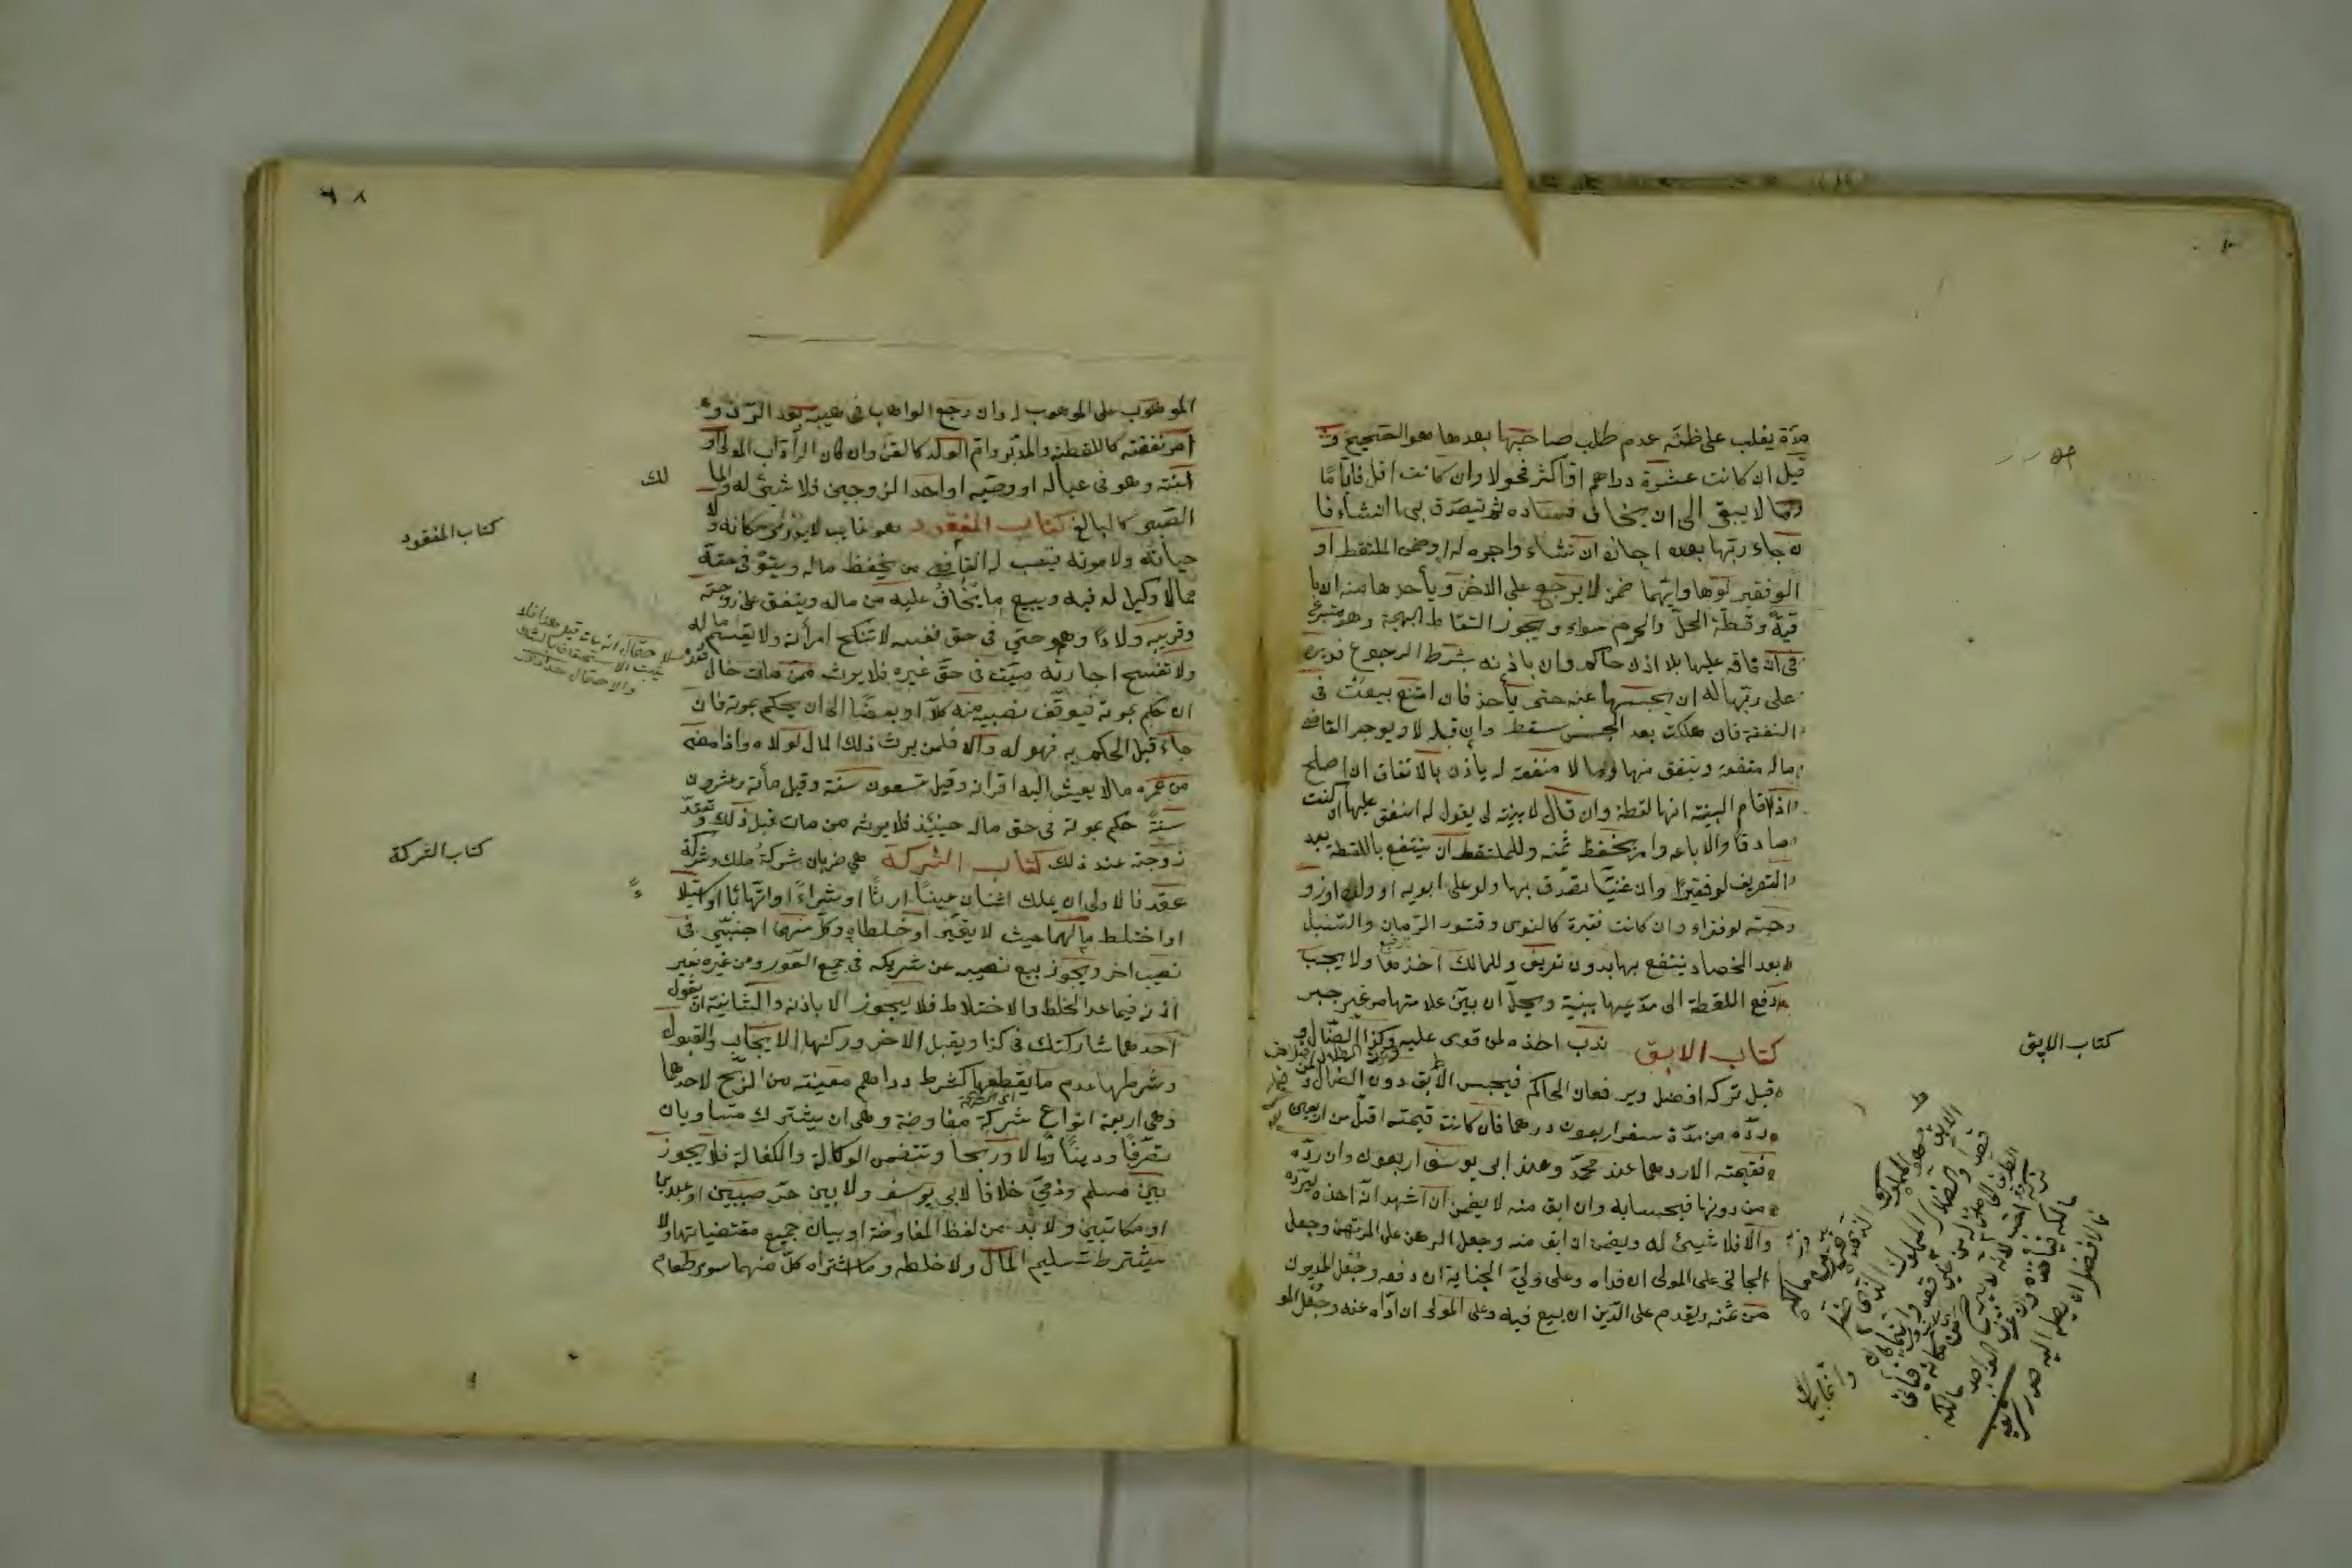 مدة يغلب على ظنه عدم طلب صاحبها بعدها هو الصحيح و
قيل ان كانت عشرة دراهم او اكثر فحولا وان كانت اقل فاياما
وما لا يبقى الى ان يخاف فساده ثم يتصدق بها ان شاء فا
ن جاء ربها بعده اجازه ان شاء واجره له او ضمن الملتقط او
الفقير لو هالكة وايهما ضمن لا يرجع على الاخر ويأخذها منه ان با
قية ولقطة الحل والحرم سواء ويجوز التقاط البهيمة وهو متبرع
فى انفاقه عليها بلا اذن حاكم وان باذنه بشرط الرجوع فدين
على ربها له ان يحبسها عنه حتى يأخذ فان امتنع بيعت فى
النفقة فان هلكت بعد الحبس سقط وان قبله لا ويوجر القاضى
ما له منفعة وينفق منها وما لا منفعة له يأذن بالانفاق ان اصلح
اذا اقام البينة انها لقطة وان قال لا بينة لى يقول له انفق عليها ان كنت
صادقا والا باعه وامر بحفظ ثمنه وللملتقط ان ينتفع باللقطة بعد
التعريف لو فقيرا وان غنيا تصدق بها ولو على ابويه او ولده او زو
جته لو فقراء وان كانت حقيرة كالنوى وقشور الرمان والسنبل
بعد الحصاد ينتفع بها بدون تعريف وللمالك اخذها ولا يجب
دفع اللقطة الى مدعيها ببينة ويحل ان بين علامتها من غير جبر
كتاب الابق ندب اخذه لمن قوى عليه وكذا الضال و
قيل تركه افضل ويرفعان الحاكم فيحبس الابق دون الضال ولمن
رده من مدة سفر اربعون درهما فان كانت قيمته اقل من اربعين
فقيمته الا درهما عند محمد وعند ابى يوسف اربعون وان رده
من دونها فبحسابه وان ابق منه لا يضمن ان اشهد انه اخذه ليرده
والا فلا شيئ له ويضمن ان ابق منه وجعل الرهن على المرتهن وجعل
الجانى على المولى ان فداه وعلى ولى الجناية ان دفعه وجعل المديون
من ثمنه ويقدم على الدين ان بيع فيه وعلى المولى ان اداه عنه وجعل المو
كتاب الابق
الموهوب على الموهوب له وان رجع الواهب فى هبته بعد الرد و
امر نفقته كاللقطة والمدبر وام الولد كالقن وان كان الراد اب المولى او
ابنه وهو فى عياله او وصيه او احد الزوجين فلا شئ له والما
لك
الصبى كالبالغ كتاب المفقود هو غايب لا يدرى مكانه ولا
حياته ولا موته ينصب له القاضى من يحفظ ماله ويستوفى حقه
مما لا وكيل له فيه ويبيع ما يخاف عليه من ماله وينفق على زوجته
وقريبه ولادا وهو حى فى حق نفسه لا تنكح امرأته ولا يقسم ماله
ولا تفسخ اجارته ميت فى حق غيره فلا يرث ممن مات حال فقده
ان حكم بموته فيوقف نصيبه منه كلا او بعضا الى ان يحكم بموته فان
جاء قبل الحكم به فهو له والا فلمن يرث ذلك المال لولاه واذا مضى
من عمره ما لا يعيش اليه اقرانه وقيل تسعون سنة وقيل مأة وعشرون
سنة حكم بموته فى حق ماله حينئذ فلا يرثه من مات قبل ذلك وتعتد
زوجته عند ذلك كتاب الشركة هى ضربان شركة ملك وشركة
عقد فالاولى ان يملك اثنان عينا ارثا او شراء او اتهابا او استيلا
ء
او اختلط مالهما حيث لا يتميز او خلطاه وكل منهما اجنبى فى
نصيب اخر ويجوز بيع نصيبه من شريكه فى جميع الصور ومن غيره بغير
اذنه فيما عدا الخلط والاختلاط فلا يجوز الا باذنه والثانية ان يقول
احدهما شاركتك فى كذا ويقبل الاخر وركنها الايجاب والقبول
وشرطها عدم ما يقطعها كشرط دراهم معينة من الربح لاحدهما
وهى اربعة انواع شركة مفاوضة وهى ان يشترك متساويان
تصرفا ودينا ومالا وربحا وتتضمن الوكالة والكفالة فلا يجوز
بين مسلم وذمى خلافا لابى يوسف ولا بين حر صبيين او عبدين
او مكاتبين ولا بد من لفظ المفاوضة او بيان جميع مقتضياتها ولا
يشترط تسليم المال ولا خلطه وما اشتراه كل منهما سوى طعام
كتاب المفقود
كتاب الشركة